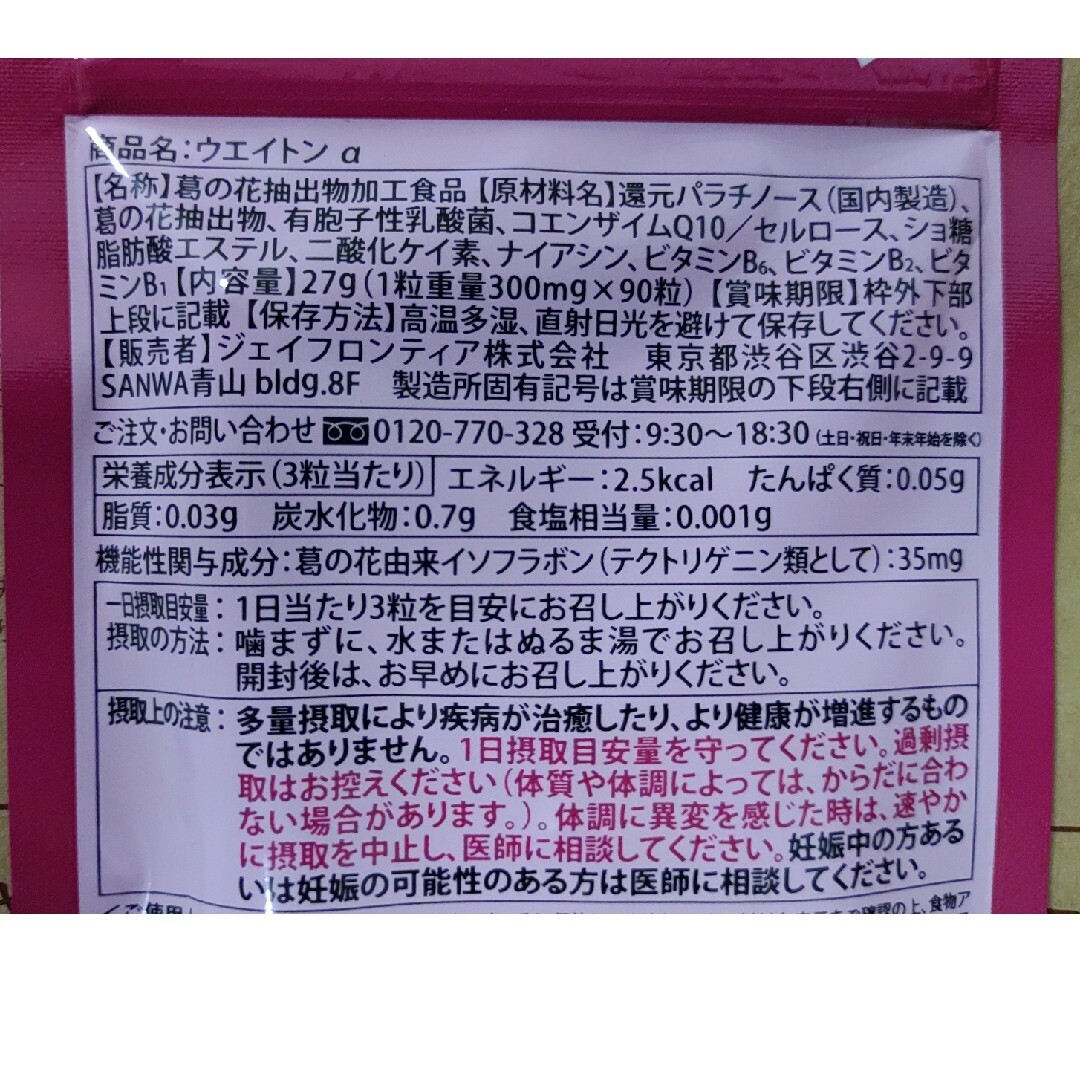 商品名:ウエイトン α
【名称】葛の花抽出物加工食品【原材料名】還元パラチノース(国内製造)、
葛の花抽出物、有胞子性乳酸菌、コエンザイムQ10/セルロース、ショ糖
脂肪酸エステル、二酸化ケイ素、ナイアシン、ビタミンB6、ビタミンB2、ビタ
ミンB1【内容量】27g(1粒重量300mg×90粒)【賞味期限】枠外下部
上段に記載【保存方法】高温多湿、直射日光を避けて保存してください。
【販売者】ジェイフロンティア株式会社 東京都渋谷区渋谷2-9-9
SANWA青山 bldg.8F 製造所固有記号は賞味期限の下段右側に記載
ご注文・お問い合わせ 0120-770-328 受付:9:30〜18:30(土日・祝日・年末年始を除く)
栄養成分表示(3粒当たり) エネルギー:2.5kcal たんぱく質:0.05g
脂質:0.03g 炭水化物:0.7g 食塩相当量:0.001g
機能性関与成分:葛の花由来イソフラボン(テクトリゲニン類として):35mg
一日摂取目安量:1日当たり3粒を目安にお召し上がりください。
摂取の方法:噛まずに、水またはぬるま湯でお召し上がりください。
開封後は、お早めにお召し上がりください。
摂取上の注意:多量摂取により疾病が治癒したり、より健康が増進するもの
ではありません。1日摂取目安量を守ってください。過剰摂
取はお控えください(体質や体調によっては、からだに合わ
ない場合があります。)。体調に異変を感じた時は、速やか
に摂取を中止し、医師に相談してください。妊娠中の方ある
いは妊娠の可能性のある方は医師に相談してください。
ご確認の上、食物ア